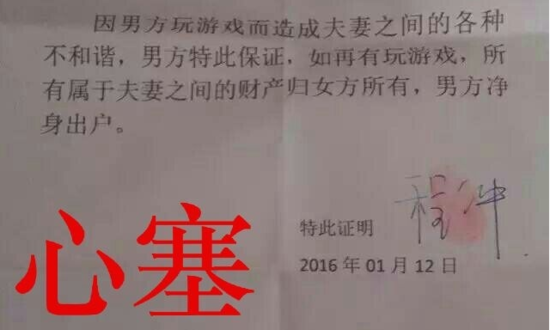 因男方玩游戏而造成夫妻之间的各种
不和谐，男方特此保证，如再有玩游戏，所
有属于夫妻之间的财产归女方所有，男方净
身出户。
程冲
特此证明
2016 年 01 月 12 日
心塞